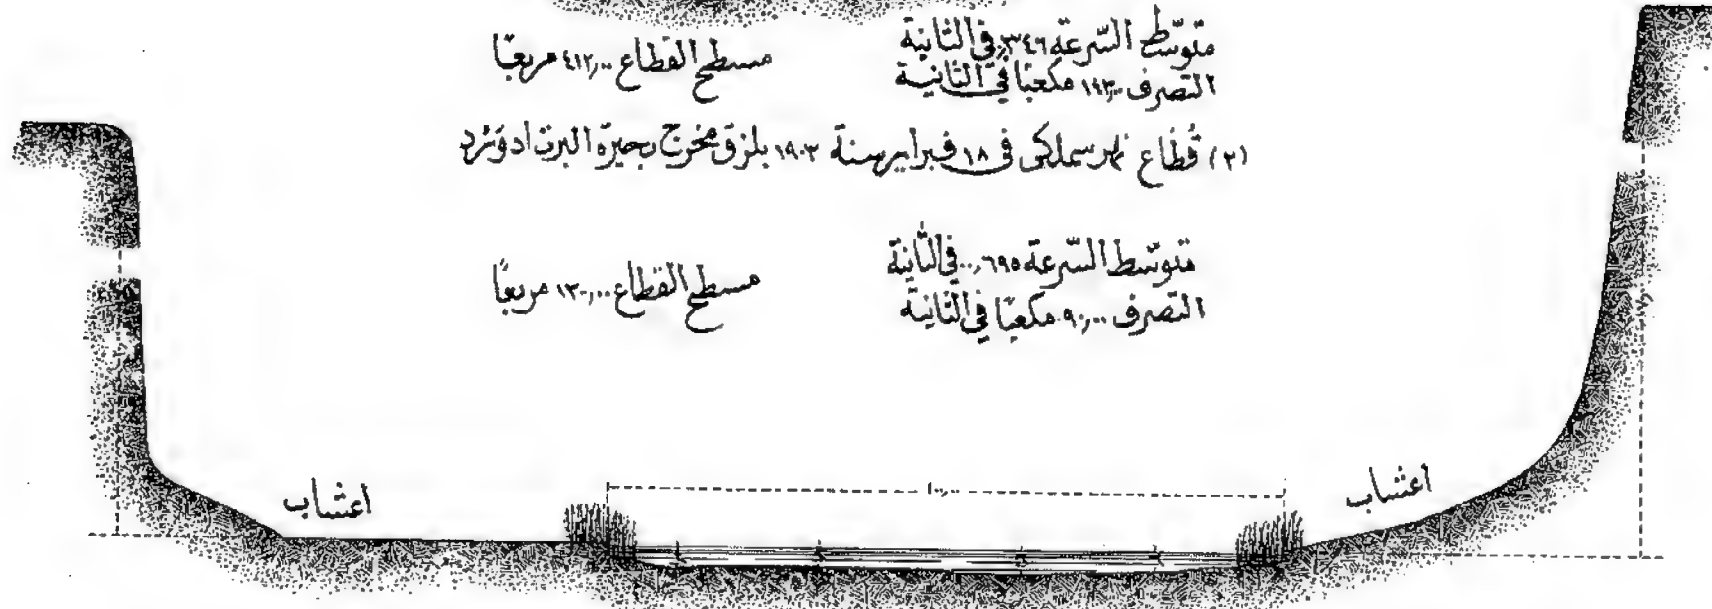 متوسّط السّرعة ٣٤٦,. في الثانية
التصرف ١٤٣,٠٠ مكعبًا في الثانية
مسطح القطاع ٤١٢,٠٠ مربعًا
(٢) قطاع نهر سملكى فى ١٨ فبراير سنة ١٩٠٣ بلزق مخرج بحيرة البرت ادوَرد
متوسّط السّرعة ٦٩٥,٠٠ في الثانية
التصرف ٩٠,٠٠ مكعبًا في الثانية
مسطح القطاع ١٣٠,٠٠ مربعًا
اعشاب
١٠٠,٠٠
اعشاب